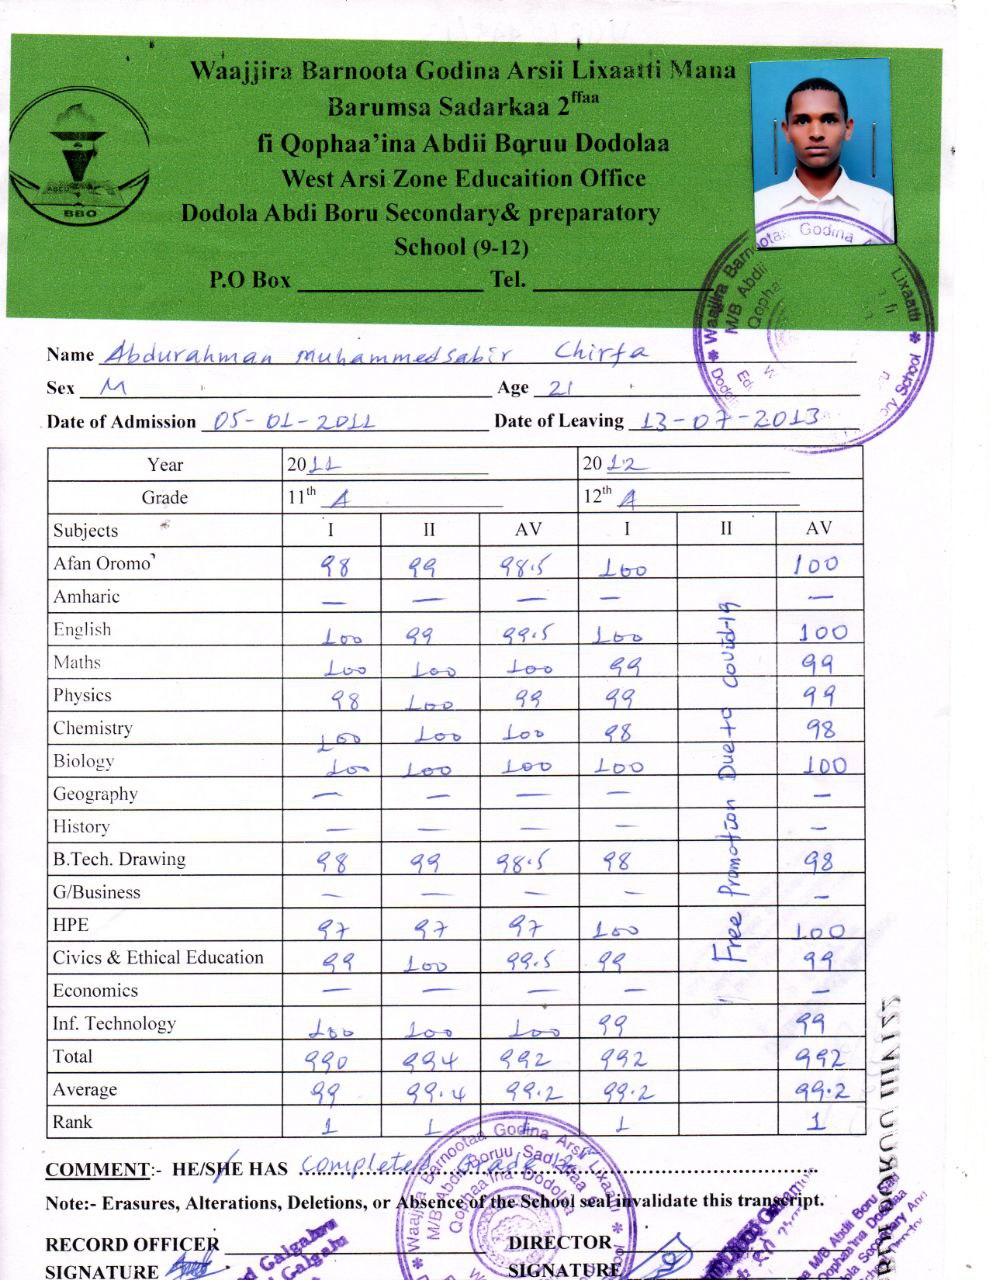 Waajjira Barnoota Godina Arsii Lixaatti Mana
Barumsa Sadarkaa 2ffaa
fi Qophaa'ina Abdii Boruu Dodolaa
West Arsi Zone Educaition Office
Dodola Abdi Boru Secondary& preparatory
School (9-12)
P.O Box Tel.
BBO
Name Abdurahman muhammedsabir Chirfa
Sex M Age 21
Date of Admission 05-01-2011 Date of Leaving 13-07-2013
Year 2011 2012
Grade 11th A 12th A
Subjects I II AV I II AV
Afan Oromo 98 99 98.5 100 100
Amharic — — — — —
English 100 99 99.5 100 100
Maths 100 100 100 99 99
Physics 98 100 99 99 99
Chemistry 100 100 100 98 98
Biology 100 100 100 100 100
Geography — — — — —
History — — — — —
B.Tech. Drawing 98 99 98.5 98 98
G/Business — — — — —
HPE 97 97 97 100 100
Civics & Ethical Education 99 100 99.5 99 99
Economics — — — — —
Inf. Technology 100 100 100 99 99
Total 990 994 992 992 992
Average 99 99.4 99.2 99.2 99.2
Rank 1 1 1 1 1
Free Promotion Due to Covid-19
COMMENT:- HE/SHE HAS completed Grade
Note:- Erasures, Alterations, Deletions, or Absence of the School seal invalidate this transcript.
RECORD OFFICER DIRECTOR
SIGNATURE SIGNATURE
Waajjira Barnootaa Godina Arsii Lixaatti
M/B Abdii Boruu Sadarkaa
Qophaa'ina Dodolaa